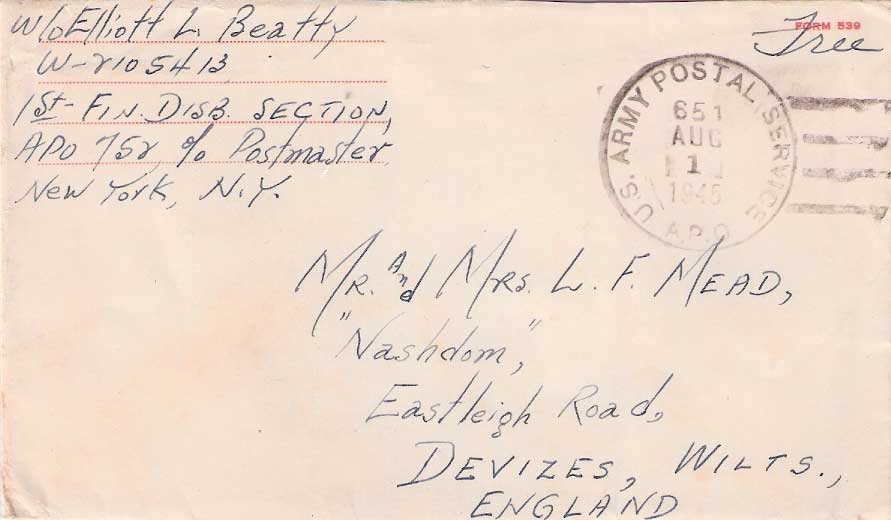 W/O Elliott L. Beatty
W-2105413
1st Fin. Disb. Section,
APO 752, c/o Postmaster
New York, N.Y.
FORM 539
Free
U.S. ARMY POSTAL SERVICE
651
AUG
1
1945
A.P.O.
Mr. And Mrs. L. F. Mead,
"Nashdom",
Eastleigh Road,
DEVIZES, WILTS.,
ENGLAND